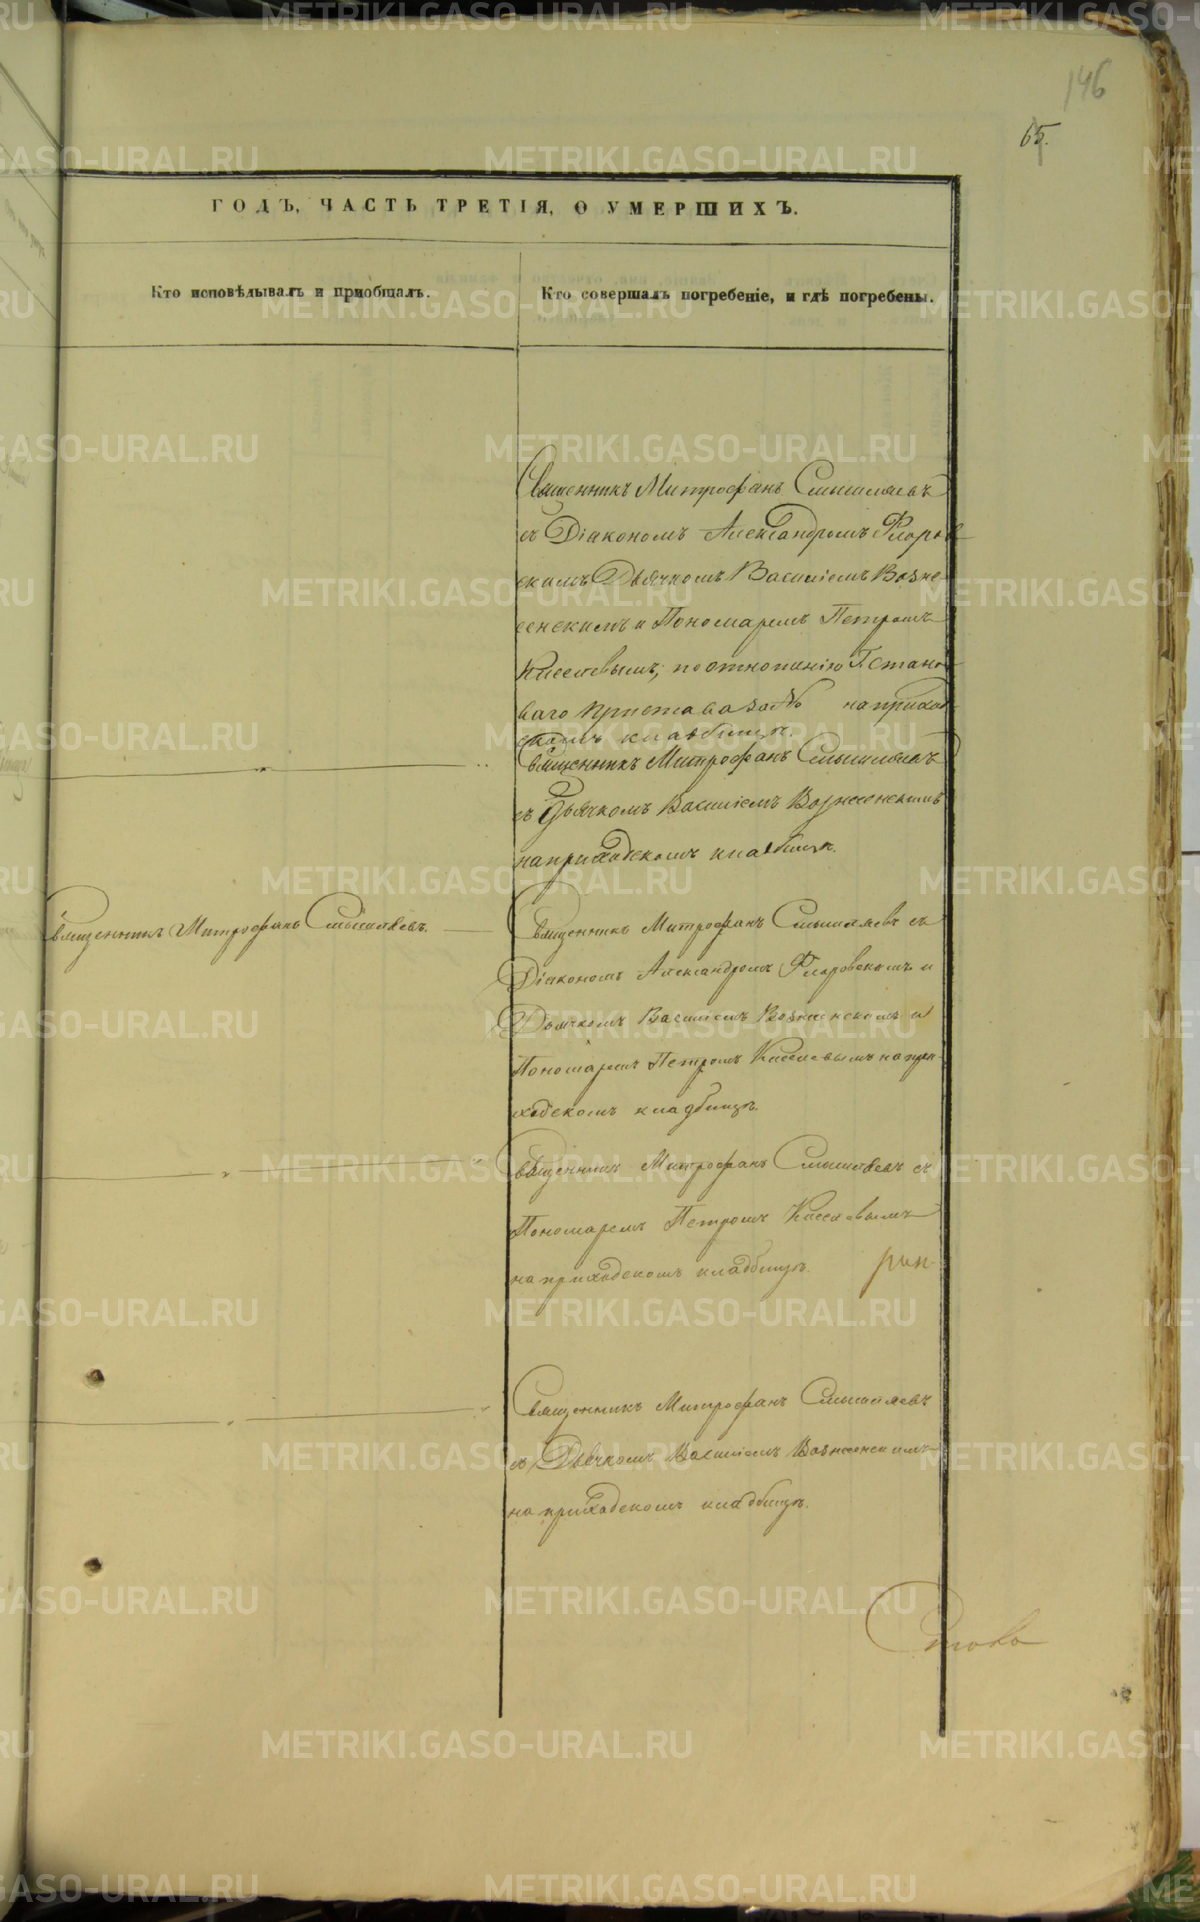 146
65.
ГОДЪ, ЧАСТЬ ТРЕТІЯ, О УМЕРШИХЪ.
Кто исповѣдывалъ и пріобщалъ.
Кто совершалъ погребеніе, и гдѣ погребены.
Священникъ Митрофанъ Смышляевъ
съ Діакономъ Александромъ Флоров
скимъ Дьячкомъ Василіемъ Возне
сенскимъ и Пономаремъ Петромъ
Киселевымъ, по отношенію Г. Стано
ваго Пристава за № на приход
скомъ кладбищѣ.
Священникъ Митрофанъ Смышляевъ
съ Дьячкомъ Василіемъ Вознесенскимъ
на приходскомъ кладбищѣ.
Священникъ Митрофанъ Смышляевъ.
Священникъ Митрофанъ Смышляевъ съ
Діакономъ Александромъ Флоровскимъ и
Дьячкомъ Василіемъ Вознесенскимъ и
Пономаремъ Петромъ Киселевымъ на при-
ходскомъ кладбищѣ.
Священникъ Митрофанъ Смышляевъ съ
Пономаремъ Петромъ Киселевымъ
на приходскомъ кладбищѣ.
Священникъ Митрофанъ Смышляевъ
съ Дьячкомъ Василіемъ Вознесенскимъ
на приходскомъ кладбищѣ.
METRIKI.GASO-URAL.RU